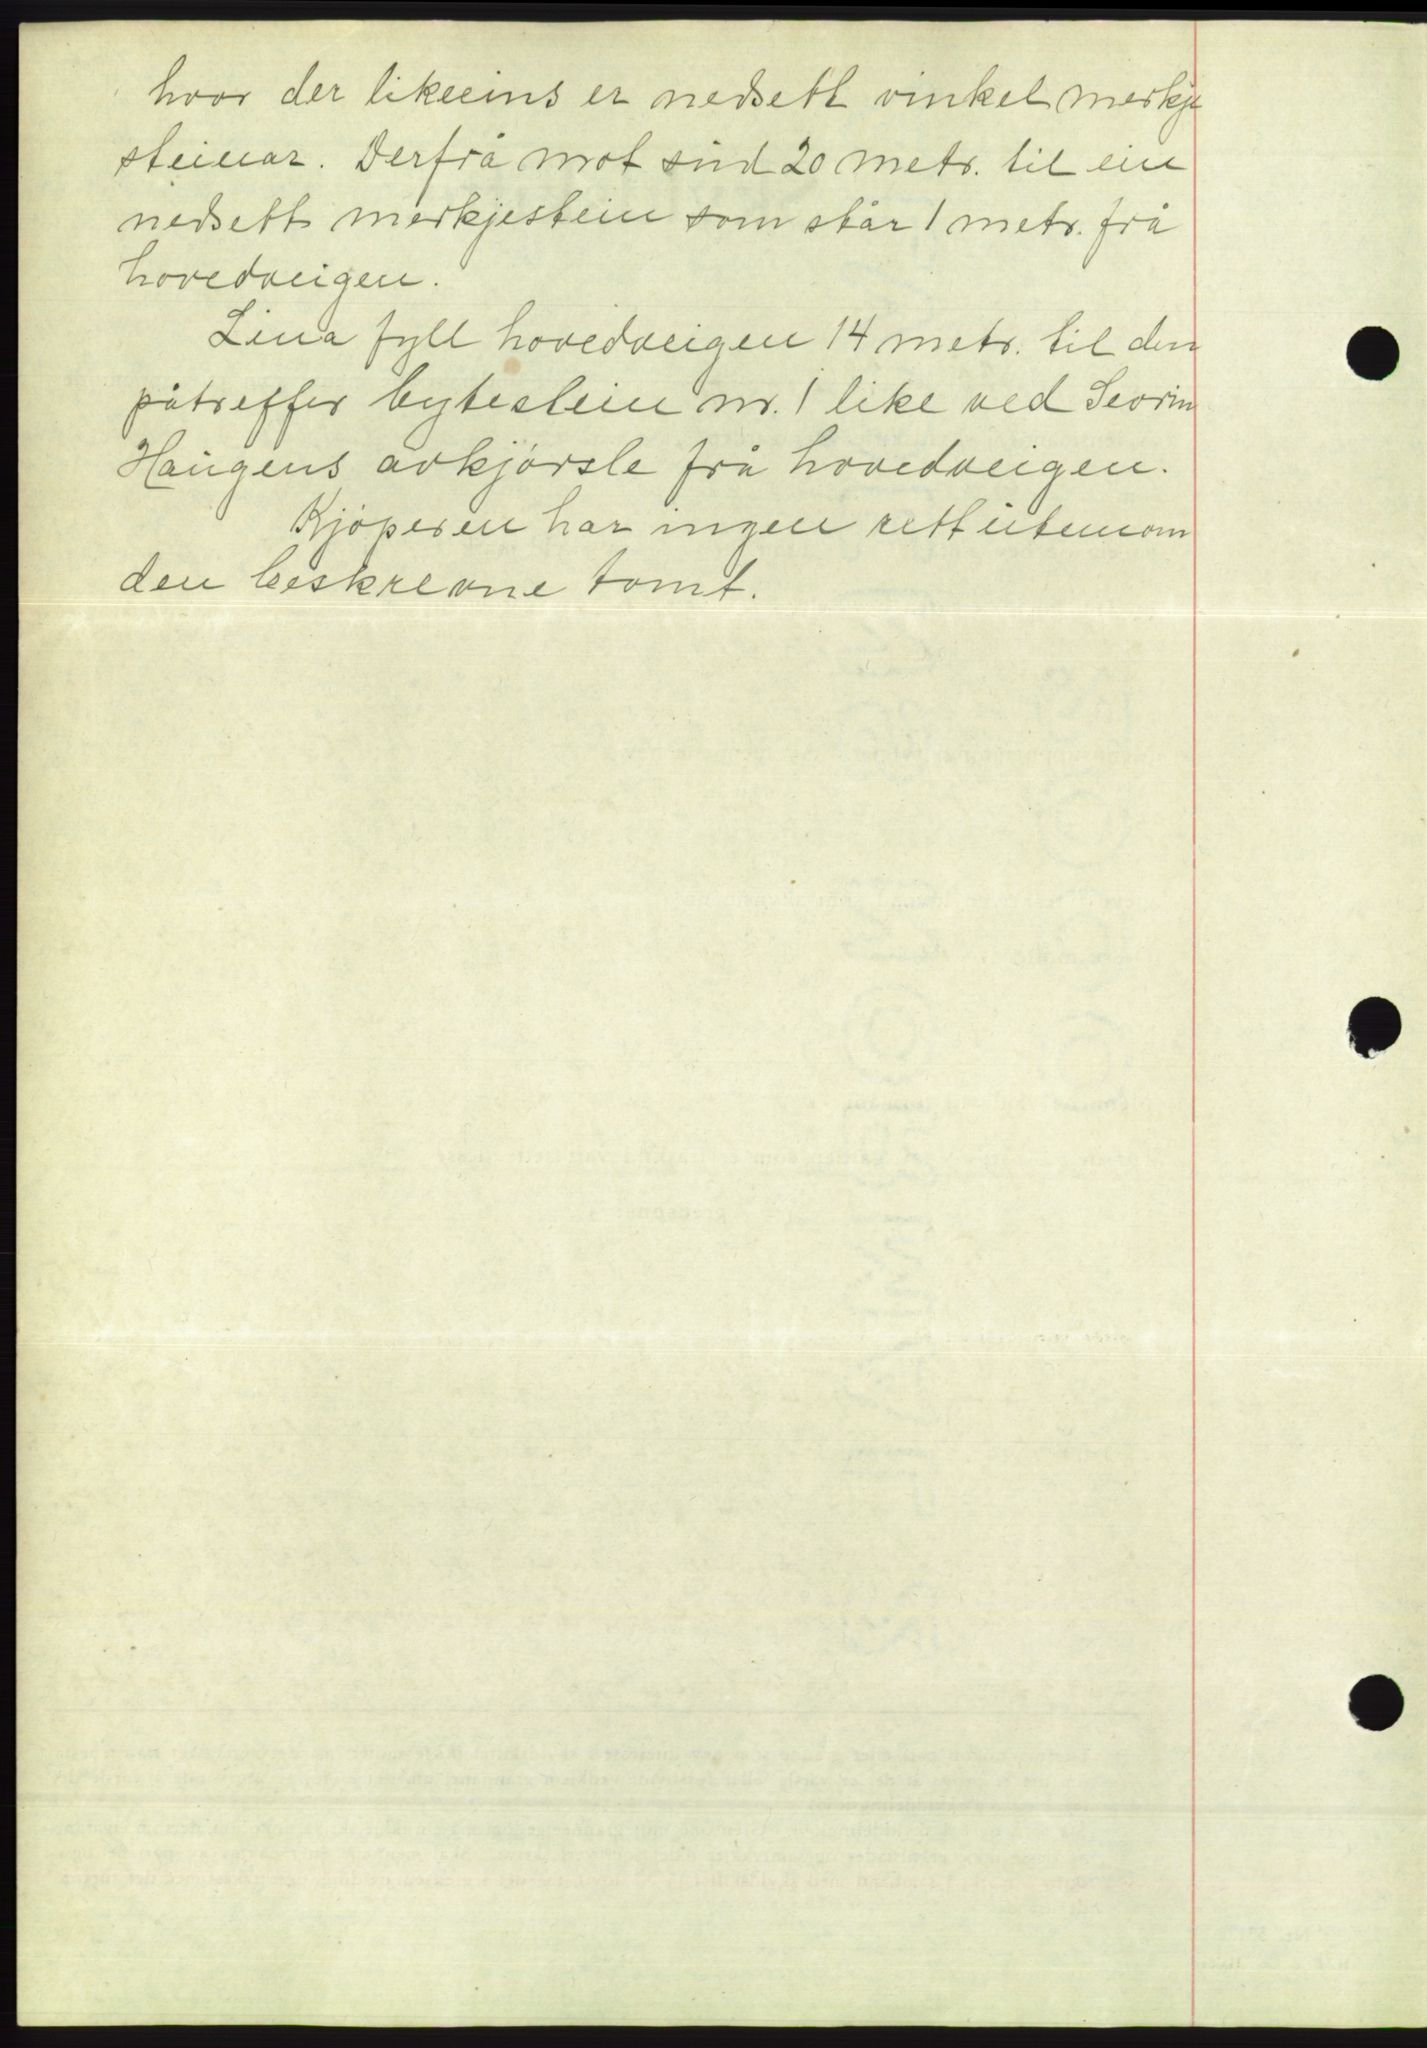 hvor der likeeins er nedsett vinkel merkje
steinar. Derfrå mot süd 20 metr. til ein
nedsett merkjestein som står 1 metr. frå
hovedveigen.
Lina fyll hovedveigen 14 metr. til den
påtreffer bytestein nr. 1 like ved Sevrin
Haŭgens avkjørsle frå hovedveigen.
Kjøperen har ingen rett ütenom
den beskrevne tomt.